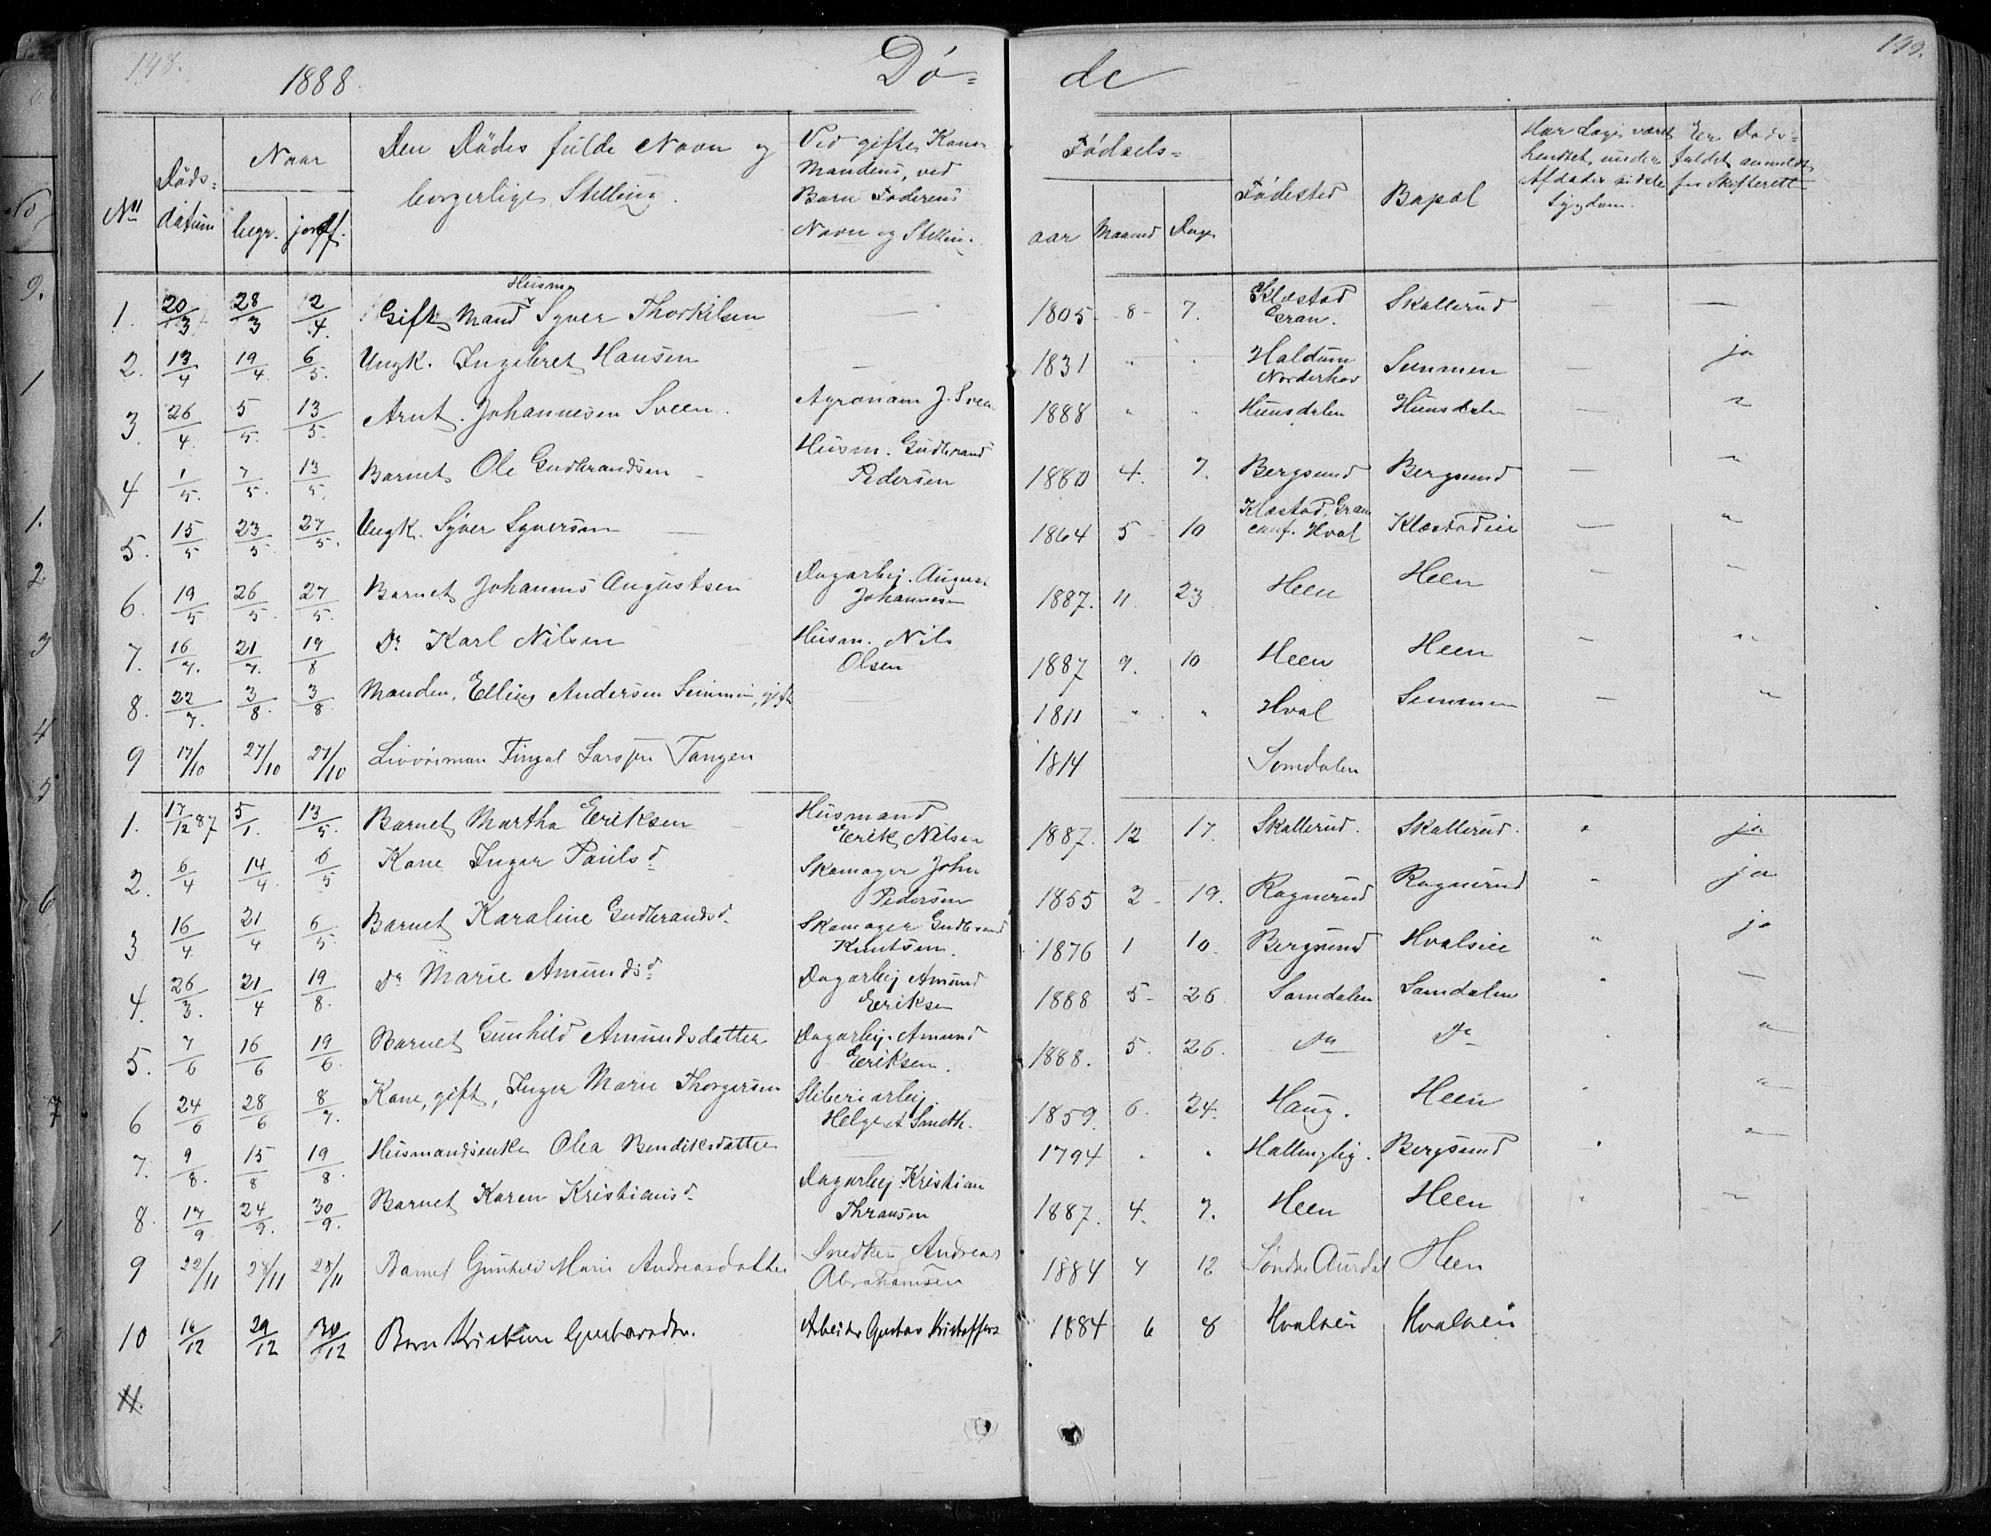 148. 1888. Dö= de 149.
No Döds-datum Naar begr. jordf. Den Dödes fulde Navn og borgerlige Stilling. Ved gifte Kone Mandens, ved Barn Faderens Navn og Stilling. Födsels= aar Maaned Dage Födested Bopæl Har Læge været hentet under Afdødes sidste Sygdom. Er Døds-faldet anmeldt for Skifterett
1. 20/3 28/3 2/4 Gift Mand Husm. Syver Thorkilsen — 1805 8 7. Klæstad Gran. Skallerud — —
2. 13/4 19/4. 6/5. Ungk. Ingebret Hansen — 1831 " " Haldum Norderhov Semmen — ja
3. 26/4. 5/5. 13/5. Arnt Johannesen Sveen. Agronom J. Sveen 1888 " " Hunsdalen Hunsdalen — "
4 1/5. 7/5. 13/5. Barnet Ole Gudbrandsen Husm. Gudbrand Pedersen 1880 4. 7. Bergsund Bergsund — "
5. 15/5 23/5 27/5. Ungk. Syver Syversen — 1864 5 10 Klæstad, Gran conf. Hval Klæstadeie — "
6. 19/5 26/5. 27/5. Barnet Johannes Augustsen Dagarbej. August Johannesen 1887. 11. 23 Heen Heen — "
7. 16/7. 21/7. 19/8 Do Karl Nilsen Husm. Nils Olsen 1887 9. 10 Heen Heen — "
8. 22/7. 3/8. 3/8. Manden, Elling Andersen Semmen, gift 1811 " " Hval Semmen — "
9 17/10 27/10 27/10 Livöreman Fingal Larssen Tangen 1814 Somdalen
1. 17/12 87 5/1. 13/5. Barnet Martha Eriksen Husmand Erik Nilsen 1887. 12 17. Skallerud. Skallerud. " ja
2. 6/4 14/4. 6/5 Kone Inger Paulsd. Skomager John Pedersen 1855 2 19. Ragnerud Ragnerud " ja
3. 16/4 21/4 6/5 Barnet Karaline Gudbrandsd. Skomager Gudbrand Knutsen. 1876 1 10. Bergsund Hvalseie " ja
4. 26/3. 21/4 19/8. Do Marie Amundsd. Dagarbej Amund Eriksen 1888 5 26 Somdalen Somdalen " —
5. 7/6 16/6 19/6. Barnet Gunhild Amundsdatter Dagarbej. Amund Eriksen. 1888. 5. 26. Do Do " "
6 24/6 28/6 8/7. Kone, gift, Inger Marie Thorgersen Sliberiarbej. Helge A Smeth. 1859. 6. 24. Haug. Heen " "
7. 9/8. 15/8 19/8. Husmandsenke Olea Bendiksdatter — 1794 " " Hallingby. Bergsund " "
8. 17/9. 24/9. 30/9. Barnet Karen Kristiansd. Dagarbej. Kristian Thransen 1887. 4. 7. Heen Heen " "
9 22/11 28/11 28/11 Barnet Gunhild Marie Andreasdatter Snedker Andreas Abrahamsen 1884 4 12 Söndre Aurdal Heen
10 16/12 29/12 30/12 Barn Kristine Gustavsdtr. Arbeider Gustav Kristoffers 1884 6 8 Hvalseie Hvalseie
11.